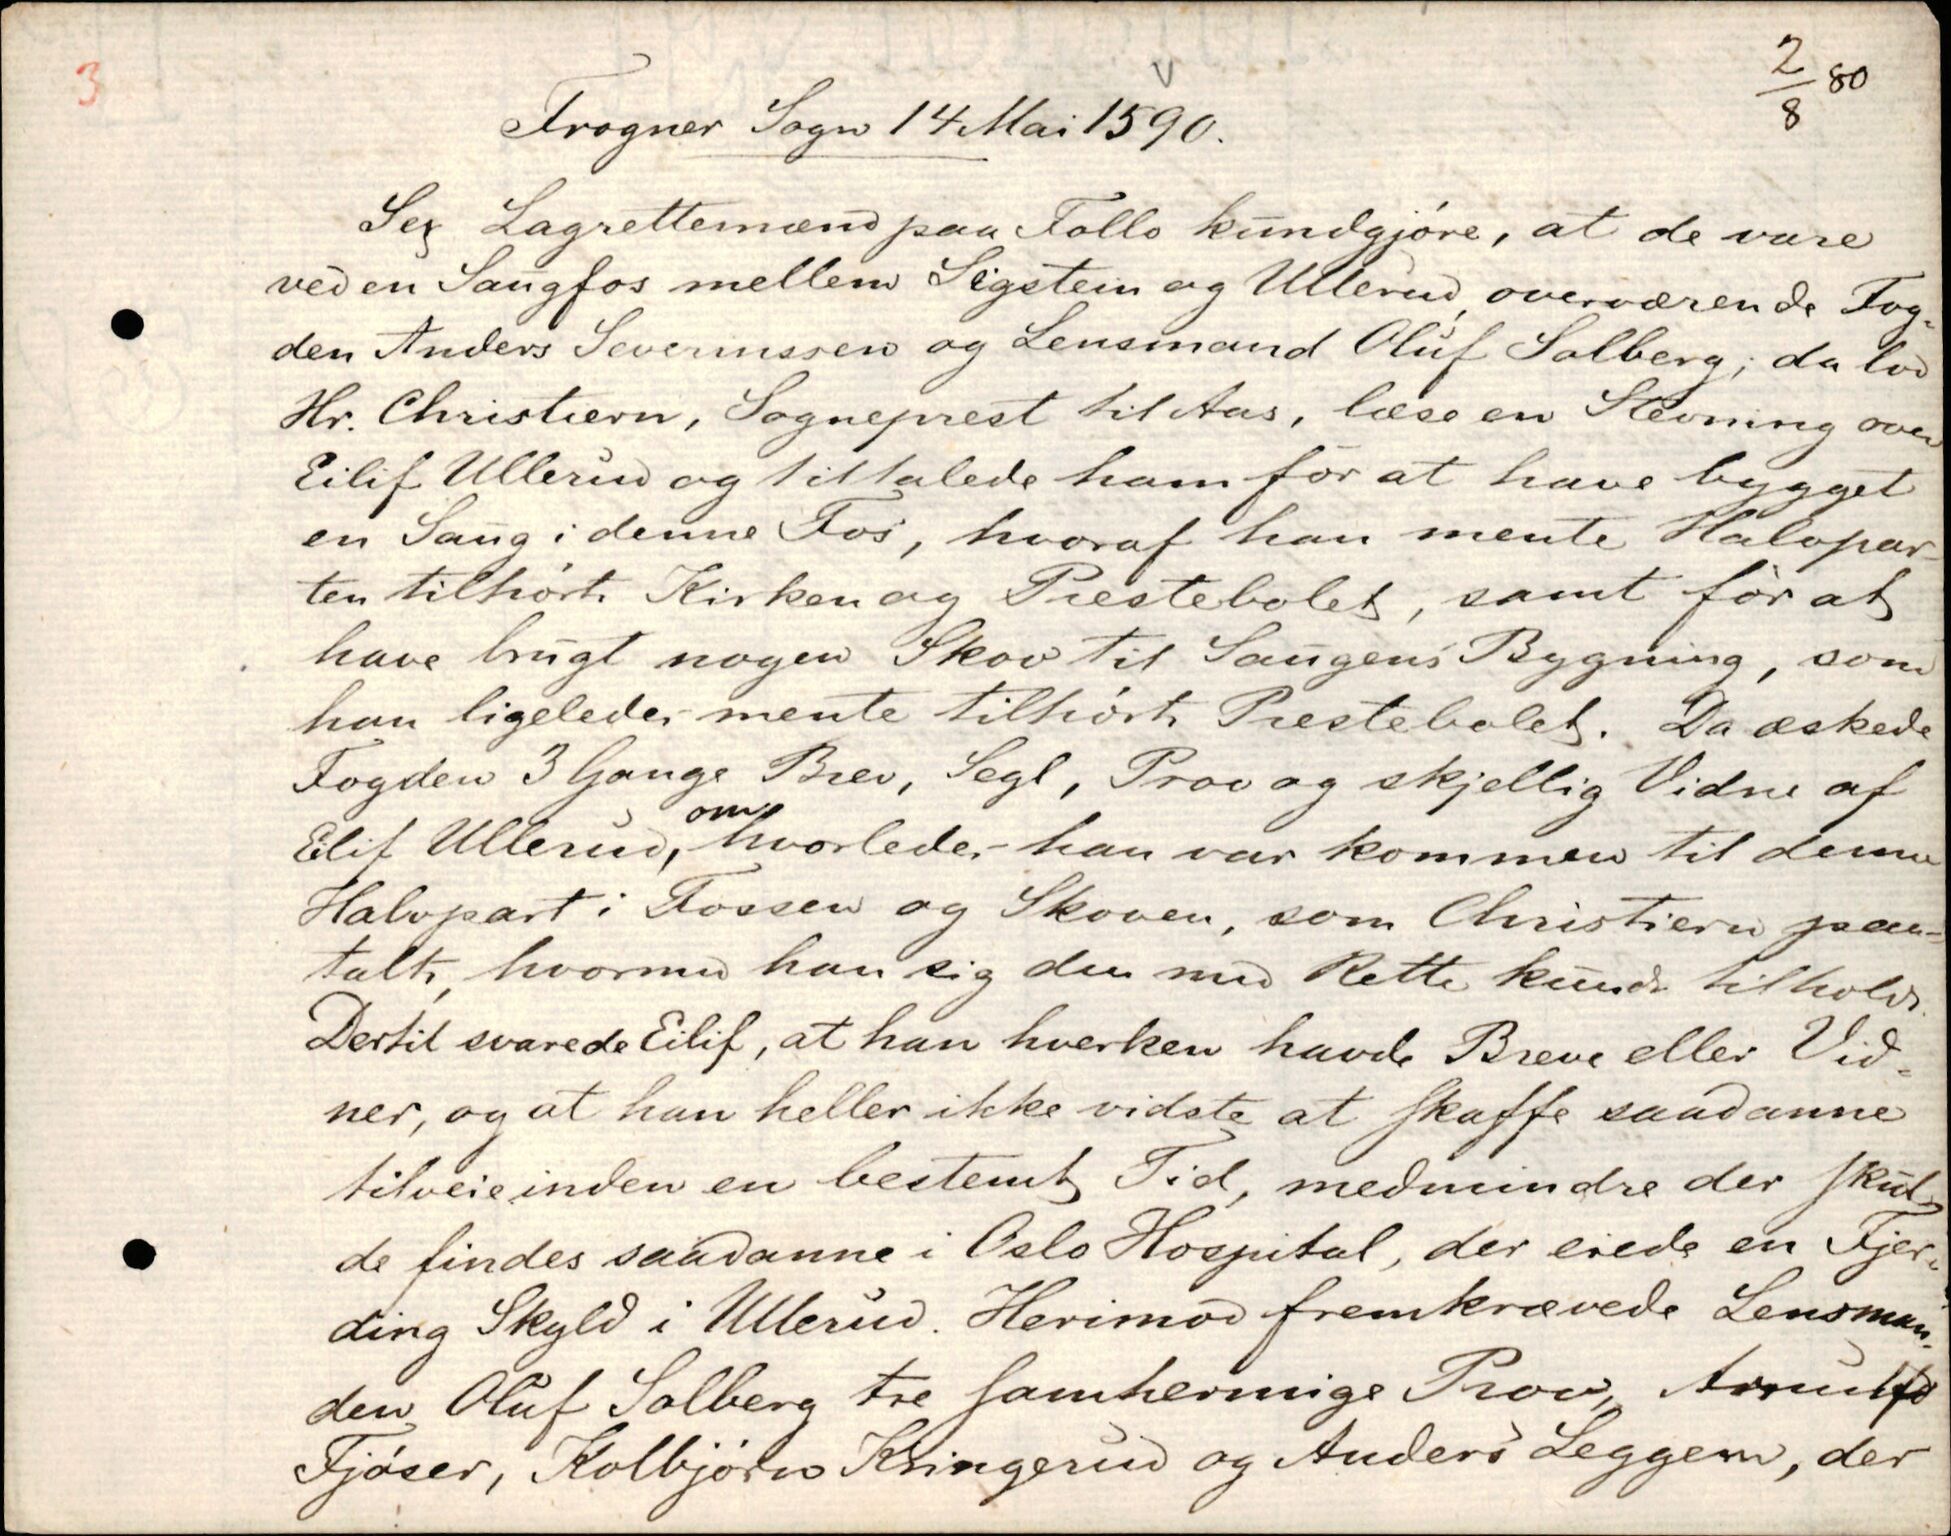 3
2/8 80
Frogner Sogn 14 Mai 1590.
Sex Lagrettemænd paa Follo kundgjöre, at de vare
ved en Saugfos mellem Sigstein og Ullerud, overværende Fog-
den Anders Severinssen og Lensmand Oluf Solberg; da lod
Hr. Christiern, Sogneprest til Aas, læse en Stevning over
Eilif Ullerud og tiltalede ham for at have bygget
en Saug i denne Fos, hvoraf han mente Halvpar-
ten tilhörte Kirken og Prestebolet, samt for at
have brugt nogen Skov til Saugens Bygning, som
han ligeledes mente tilhörte Prestebolet. Da æskede
Fogden 3 Gange Brev, Segl, Prov og skjellig Vidne af
Eilif Ullerud, om hvorledes han var kommen til denne
Halvpart i Fossen og Skoven, som Christiern paa-
talte, hvormed han sig den med Rette kunde tilholde.
Dertil svarede Eilif, at han hverken havde Breve eller Vid-
ner, og at han heller ikke vidste at skaffe saadanne
tilveie inden en bestemt Tid, medmindre der skul-
de findes saadanne i Oslo Hospital, der eiede en Fjer-
ding Skyld i Ullerud. Herimod fremkrævede Lensman-
den Oluf Solberg tre samhermige Prov,
Fjöser, Kolbjörn Kringerud og Anders Leggem, der